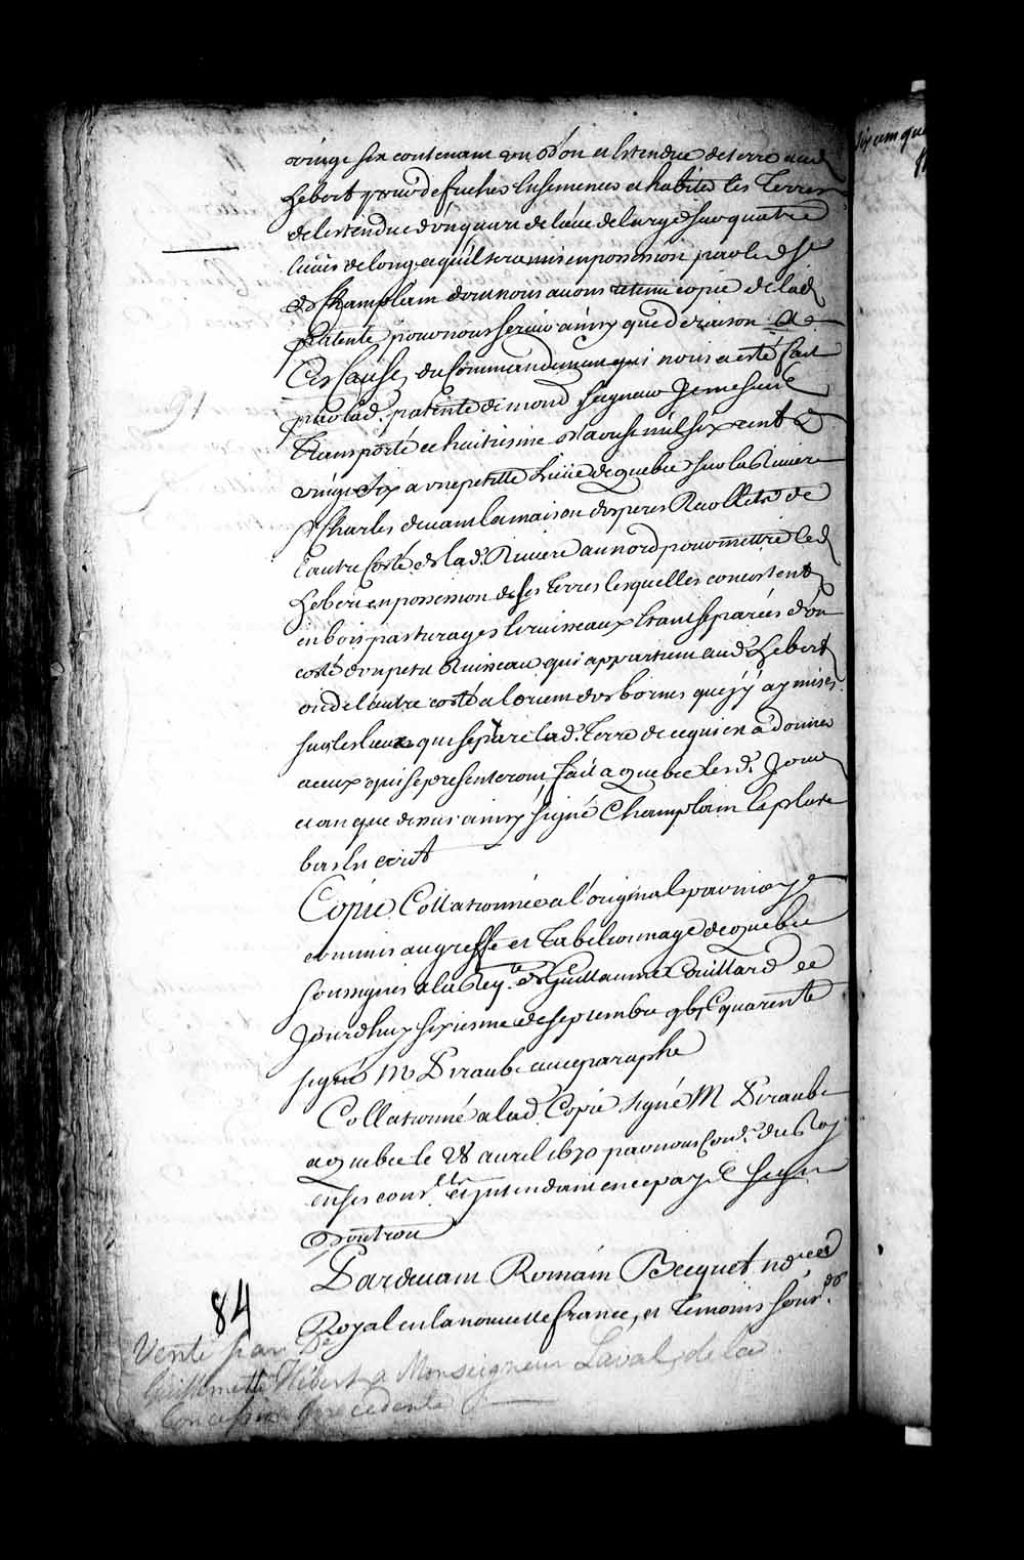 vingt six contenant un don et estendue de terre aud.
hebert pour defricher ensemencer et habiter les Terres
de lestendue d'un quart de lieue de large sur quatre
lieües de long et qu'il sera mis en possession par led. Sr
de Champlain dont nous avons retenu copie de lad.
patente pour nous servir ainsy que de raison A
Ces Causes du Commandement qui nous a esté fait
par lad. patente de mond. seigneur Je me suis
transporté ce huitiesme mil six cent
vingt six a une petitte Lieüe de quebec sur la Riviere
St Charles devant la maison des peres Recollets de
l'autre Costé de lad. Riviere au nord pour mettre led.
hebert en possession de ses terres lesquelles consistent
en bois pasturages et ruisseaux estant separées d'un
costé d'un petit Ruisseau qui appartient aud. hebert
ou de l'autre costé a lorient des bornes que j'y ay mises
sur les lieux qui separe lad. Terre de ce qui en a donner
a ceux qui se presenteront, fait a quebec lesd. Jour
et an que dessus ainsy signé Champlain et plus
bas est ecrit
Copie Collationnée a l'original par moy
commis au greffe et Tabellionnage de quebec
soussigné a la Reqte de Guillaume Couillard ce
Jourdhuy sixiesme de septembre quarente
signé M Piraube avec paraphe
Collationné a lad. Copie signé M Piraube
a quebec le 28 avril 1670 par nous Conder du Roy
en ses conls et Intendant en ce pays signé
Boutroue
Pardevant Romain Becquet nore
Royal en la nouvelle france, et temoins
84
Vente par De
Guillmette Hébert a Monseigneur Laval, de la
Concession precedente